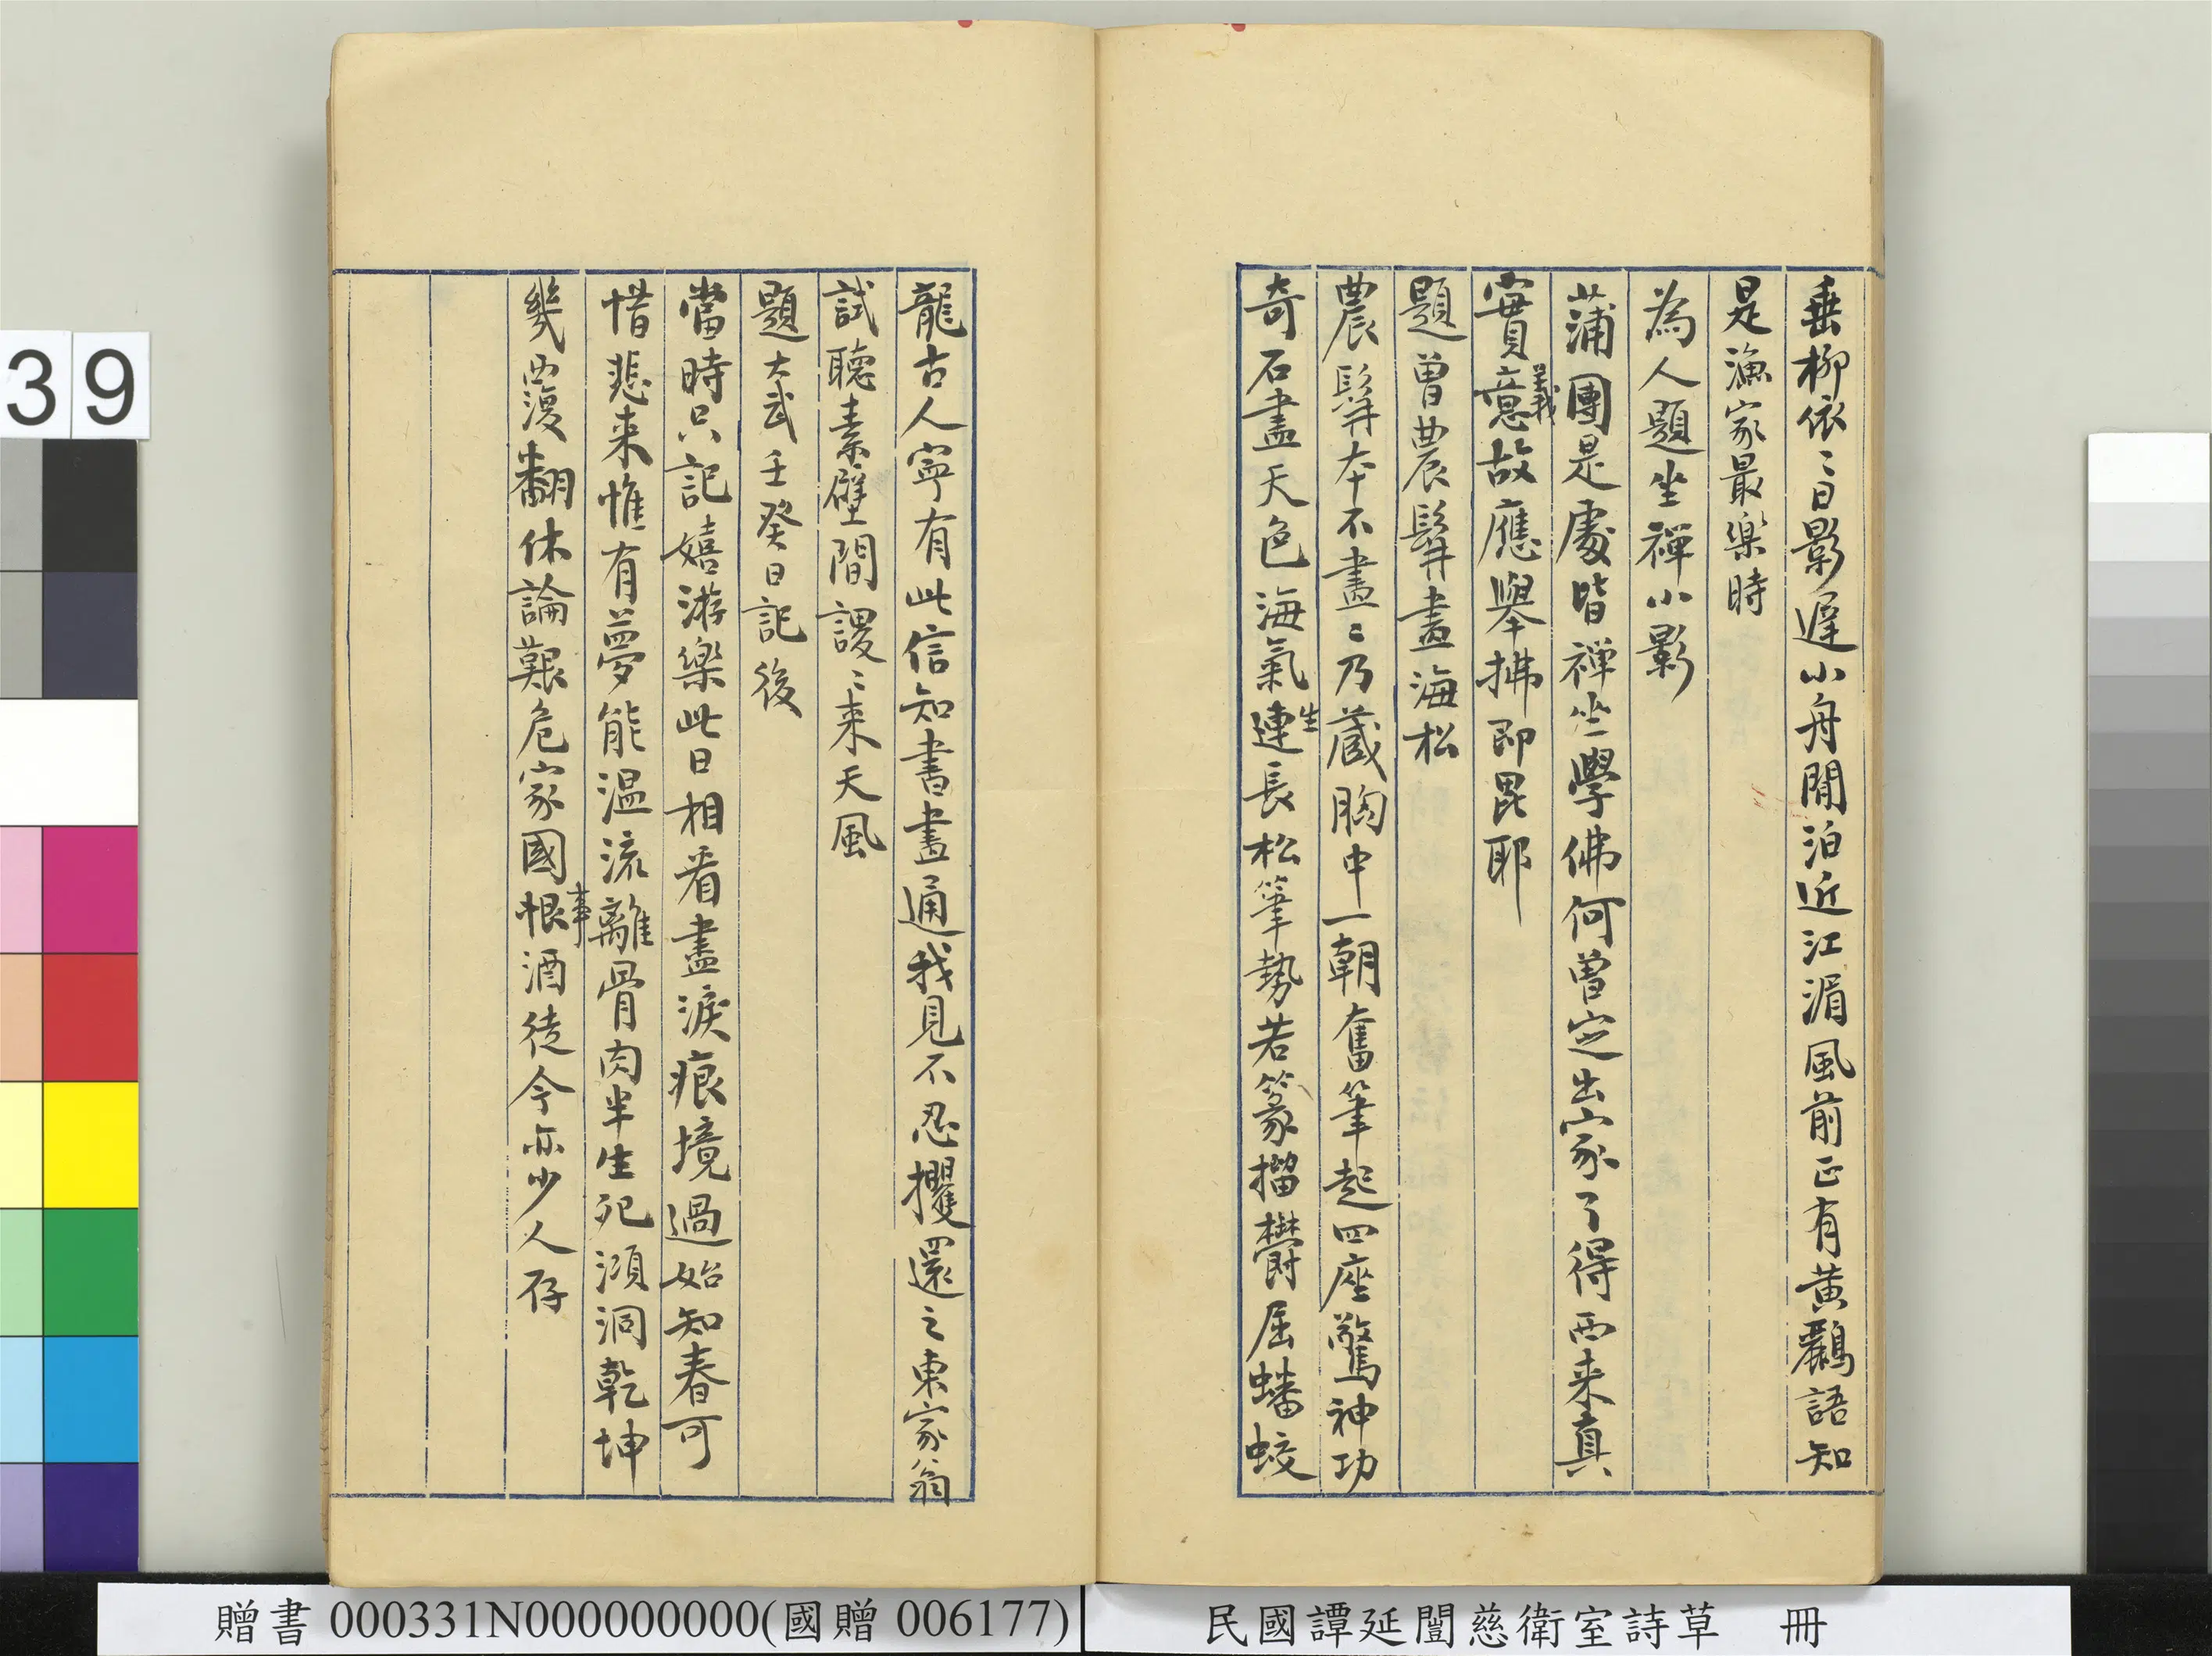 垂柳依〻日影遲小舟閒泊近江湄風前正有黃鸝語知
是漁家最樂時
為人題坐禪小影
蒲團是處皆禪坐學佛何曾定出家了得西来真
實意故應舉拂即毘耶
義
題曾農髯畫海松
農髯本不畫〻乃蔵胸中一朝奮筆起四座驚神功
奇石盡天色海氣連長松筆勢若篆擂欝屈蟠蛟
生
龍古人寧有此信知書畫通我見不忍攫還之東家翁
試聽素壁間謖〻来天風
題大武壬癸日記後
當時只記嬉游樂此日相看盡淚痕境過始知春可
惜悲来惟有夢能温流離骨肉半生死澒洞乾坤
幾覆翻休論艱危家國恨酒徒今亦少人存
事
39
贈書 000331N000000000(國贈 006177)
民國譚延闓慈衛室詩草 冊